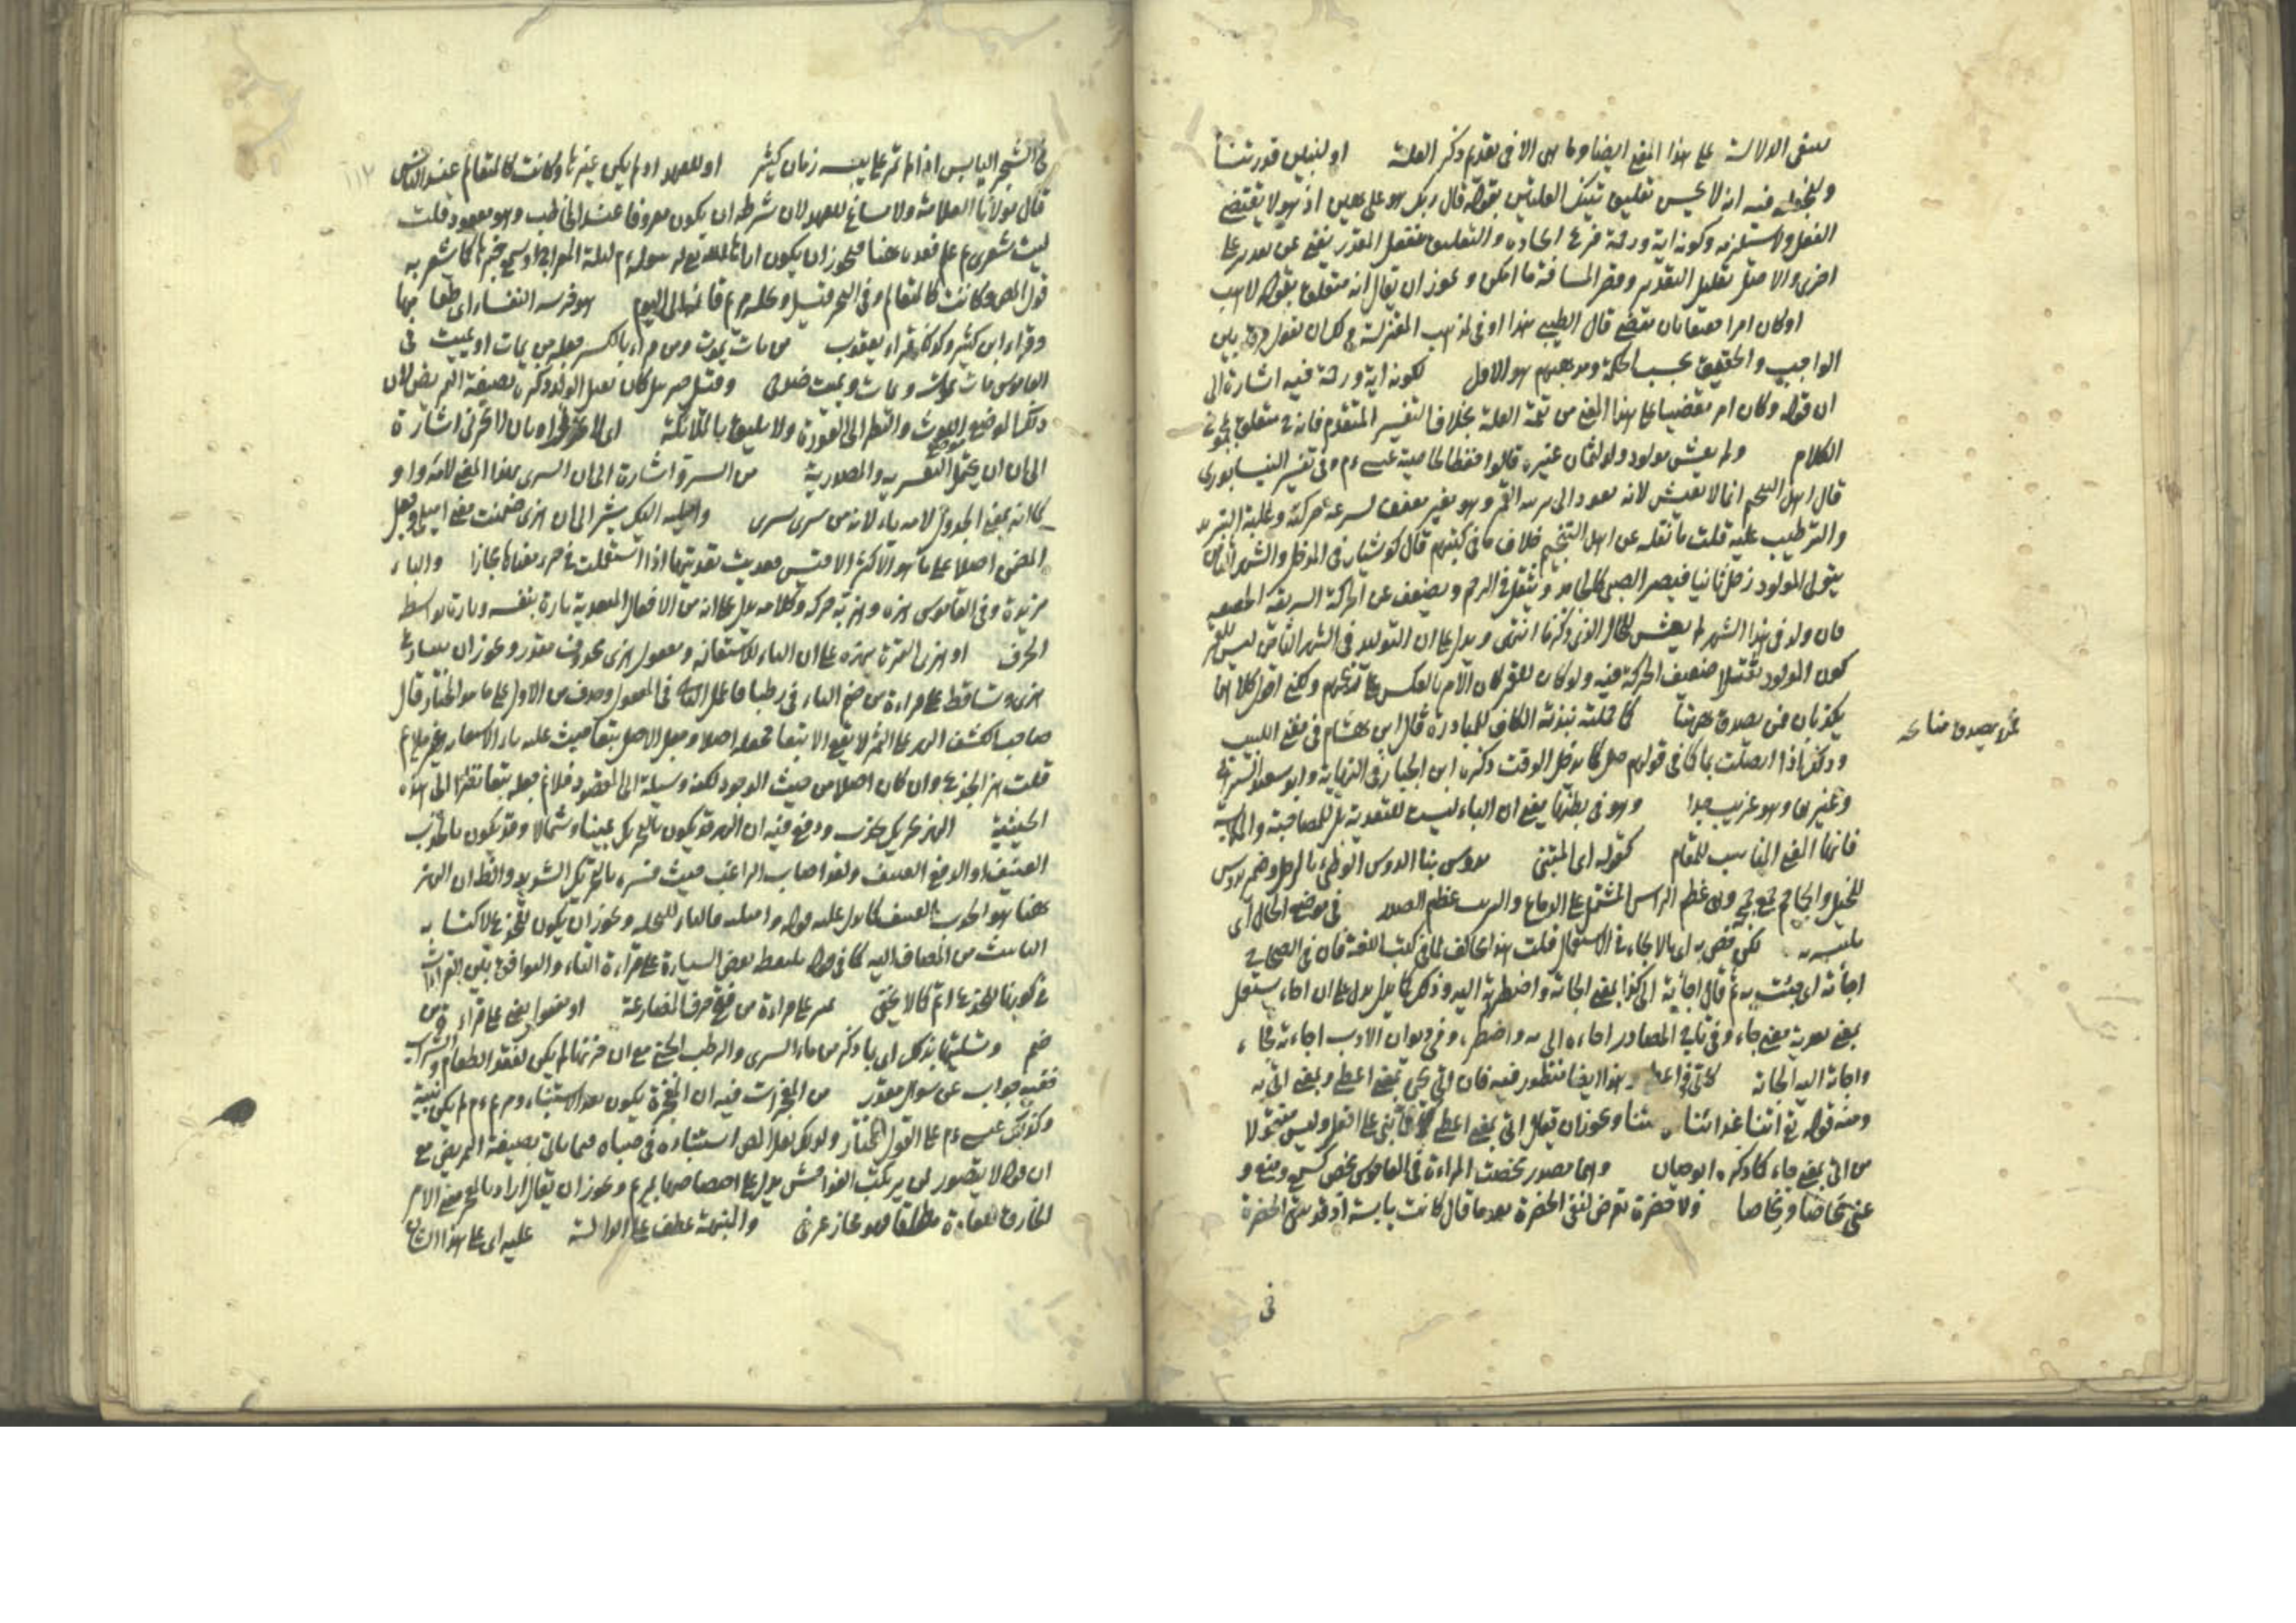 الدلالة على هذا المعنى ايضا وما هى الا فى تقدم ذكر العلة او لنبين قدرتنا
فيه انه لا يحسن تعليق تينك العلتين بقوله قال ربك هو على هين اذ هو لا يقتضى
الفعل ولا يستلزمه وكونه اية ورحمة فرع ايجاده والتعليق بفعل المقدر يغنى عن
اخرى والاصل تقليل التقدير وقصر المسافة ما امكن ويجوز ان يقال انه متعلق بقوله لاهب
او كان امرا حقيقا بان يقضى قال الطيبى هذا اوفى لمذهب المعتزلة
الواجب والحقيق بحسب الحكمة ومذهبهم هو الاول لكونه اية ورحمة فيه اشارة الى
ان قوله وكان امرا مقضيا على هذا المعنى من تتمة العلة بخلاف التفسير المتقدم فانه متعلق
الكلام ولم يعش مولود ولد لثمان غيره قالوا فقط لخاصية عيسى ءم وفى تفسير النيسابورى
قال اهل التنجيم انما لا يعيش لانه يعود الى تربية القمر وهو مغير معفن لسرعة حركته وغلبة التبريد
والترطيب عليه قلت ما نقله عن اهل التنجيم خلاف ما فى كتبهم قال كوشيار فى المدخل والشهر الثامن
يتولى المولود زحل ثانيا فيصير الصبى كالجامد ويثقل فى الرحم ويضعف عن الحركة السريعة
فان ولد فى هذا الشهر لم يعش للحال الذى ذكرنا انتهى ويدل على ان التوليد فى الشهر الثامن ليس للقمر
كون المولود ثقيلا ضعيف الحركة فيه ولو كان للقمر كان الامر بالعكس على قولهم ولكنى اقول كلاهما
يكذبان فمن يصدق منهما كما فعلته نبذته الكاف للمبادرة قال ابن هشام فى مغنى اللبيب
وذلك اذا اتصلت بما كما فى قولهم صل كما يدخل الوقت ذكره ابن الخباز فى النهاية وابو سعيد السيرافى
وغيرهما وهو غريب جدا وهو فى بطنها يعنى ان الباء ليست للتعدية بل للمصاحبة والملابسة
فانها المعنى المناسب للمقام كقوله اى المتنبى تدوس بنا الدوس الوطئ بالرجل وضمير تدوس
للخيل والجماجم جمع جمجمة وهى عظم الراس المشتمل على الدماغ والتريب عظم الصدر فى موضع الحال اى
ملتبسة به لكن خص به اى بالالجاء فى الاستعمال قلت هذا يخالف لما فى كتب اللغة فان فى الصحاح
اجأته اى جئت به ثم قال اجأته الى كذا بمعنى الجأته واضطررته اليه وذلك كما يدل على ان اجاء يستعمل
بمعنى تعدية معنى جاء وفى تاج المصادر اجاءه الى به واضطره وفى ديوان الادب اجاءته فجاء
واجاءه اليه الجأته كآتى فى اعطى هذا ايضا منظور فيه فان اتى يجئ بمعنى اعطى وبمعنى اتى به
ومنه قوله تع اتنا غداءنا ويجوز ان يقال اتى بمعنى اعطى مبنى على افعل وليس منقولا
من اتى بمعنى جاء كما ذكره ابو حيان وهما مصدر مخضت المراءة فى القاموس مخض كسمع ومنع و
عنى مخاضا ومخاضا ولا خضرة تعرض لنفى الخضرة بعد ما قال كانت يابسة اذ قد يبقى الخضرة
فى
يصدق
فى الشجر اليابس اذا لم تمر على يبسه زمان كثير او للعهد اذ لم يكن غيرها وكانت كالمتعالم عند الناس
قال مولانا العلامة ولا مساغ للعهد لان شرطه ان يكون معروفا عند المخاطب وهو مفقود قلت
ليت شعرى لم علم فقده هنا فيجوز ان يكون اراها الله تع لرسوله ءم ليلة المعراج او سمع خبرها كما شعر به
قول المص وكانت كالمتعالم وفى البحر قيل ونخلة مريم قائمة الى اليوم هو خرسة النفساء اى طعامها
وقراء ابن كثير وكذلك قراء يعقوب من مات يموت ومن قراء بالكسر جعله من يمات او يميت فى
القاموس مات يموت ويمات ويميت ضد حى وقيل جبريل كان يقبل الولد وذكره بصيغة التمريض لان
ذلك الموضع موضع اللوث والنظر الى العورة ولا يليق بالملائكة اى لا تحزنى او بان لا تحزنى اشارة
الى ان ان يحتمل التفسيرية والمصدرية من السرو اشارة الى ان السرى بهذا المعنى لامه واو
كما انه بمعنى الجدول لامه ياء لانه من سرى يسرى واميليه اليك يشير الى ان هزى ضمنت معنى اميلى وجعل
المضمن اصلا على ما هو الاكثر الاقيس فعديت تعديتها اذا استعملت فى جر معناها مجازا والباء
مزيدة وفى القاموس هزه وهز به حركه وكلامه يدل على انه من الافعال المتعدية تارة بنفسه وتارة بواسطة
الحرف او هزى الثمرة بهزه على ان الباء للاستعانة ومفعول هزى محذوف مقدر ويجوز ان يتنازع
هزى وتساقط على قراءة من ضم التاء فى رطبا فاعمل الثانى فى المفعول وحذف من الاول على ما هو المختار قال
صاحب الكشف الهز على الثمر لا يقع الا تبعا فجعله اصلا وجعل الاصل تبعا حيث عليه باء الاستعانة غير ملائم
قلت هز الجذع وان كان اصلا من حيث الوجود لكنه وسيلة الى المقصود فلا غرو فى جعله تبعا نظرا الى هذه
الحيثية الهز تحريك بجذب ودفع فيه ان الهز قد يكون بالتحريك يمينا وشمالا وقد يكون بالجذب
العنيف او الدفع العنيف ولقد اصاب الراغب حيث فسره بالتحريك الشديد والظ ان الهز
ههنا هو الجذب العنيف كما دل عليه قوله واميليه فالتاء للنخلة ويجوز ان يكون للجذع لاكتسابه
التانيث من المضاف اليه كما فى قوله تلتقطه بعض السيارة على قراءة التاء والتوافق بين القراءات
فى كونها للجذع اتم كما لا يخفى تميز على قراءة من فتح حرف المضارعة او مفعول يعنى على قراءة من
ضم وتسليتها بذلك اى بما ذكر من ماء السرى والرطب الجنى مع ان حزنها لم يكن لفقد الطعام والشراب
ففيه جواب عن سوال مقدر من المعجزات فيه ان المعجزة يكون بعد الاستنباء ومريم ءم لم يكن نبية
وكذلك عيسى ءم على القول المختار ولو لكن لعل المص استنباده فى صباه فيما ياتى بصيغة التمريض مع
ان قوله لا يتصور لمن يرتكب الفواحش يدل على اختصاصها بمريم ويجوز ان يقال اراد بالمعجز معنى الامر
الخارق للعادة مطلقا فهو مجاز عرفى والمنبهة عطف على الدالة عليه اى على هذا الشان